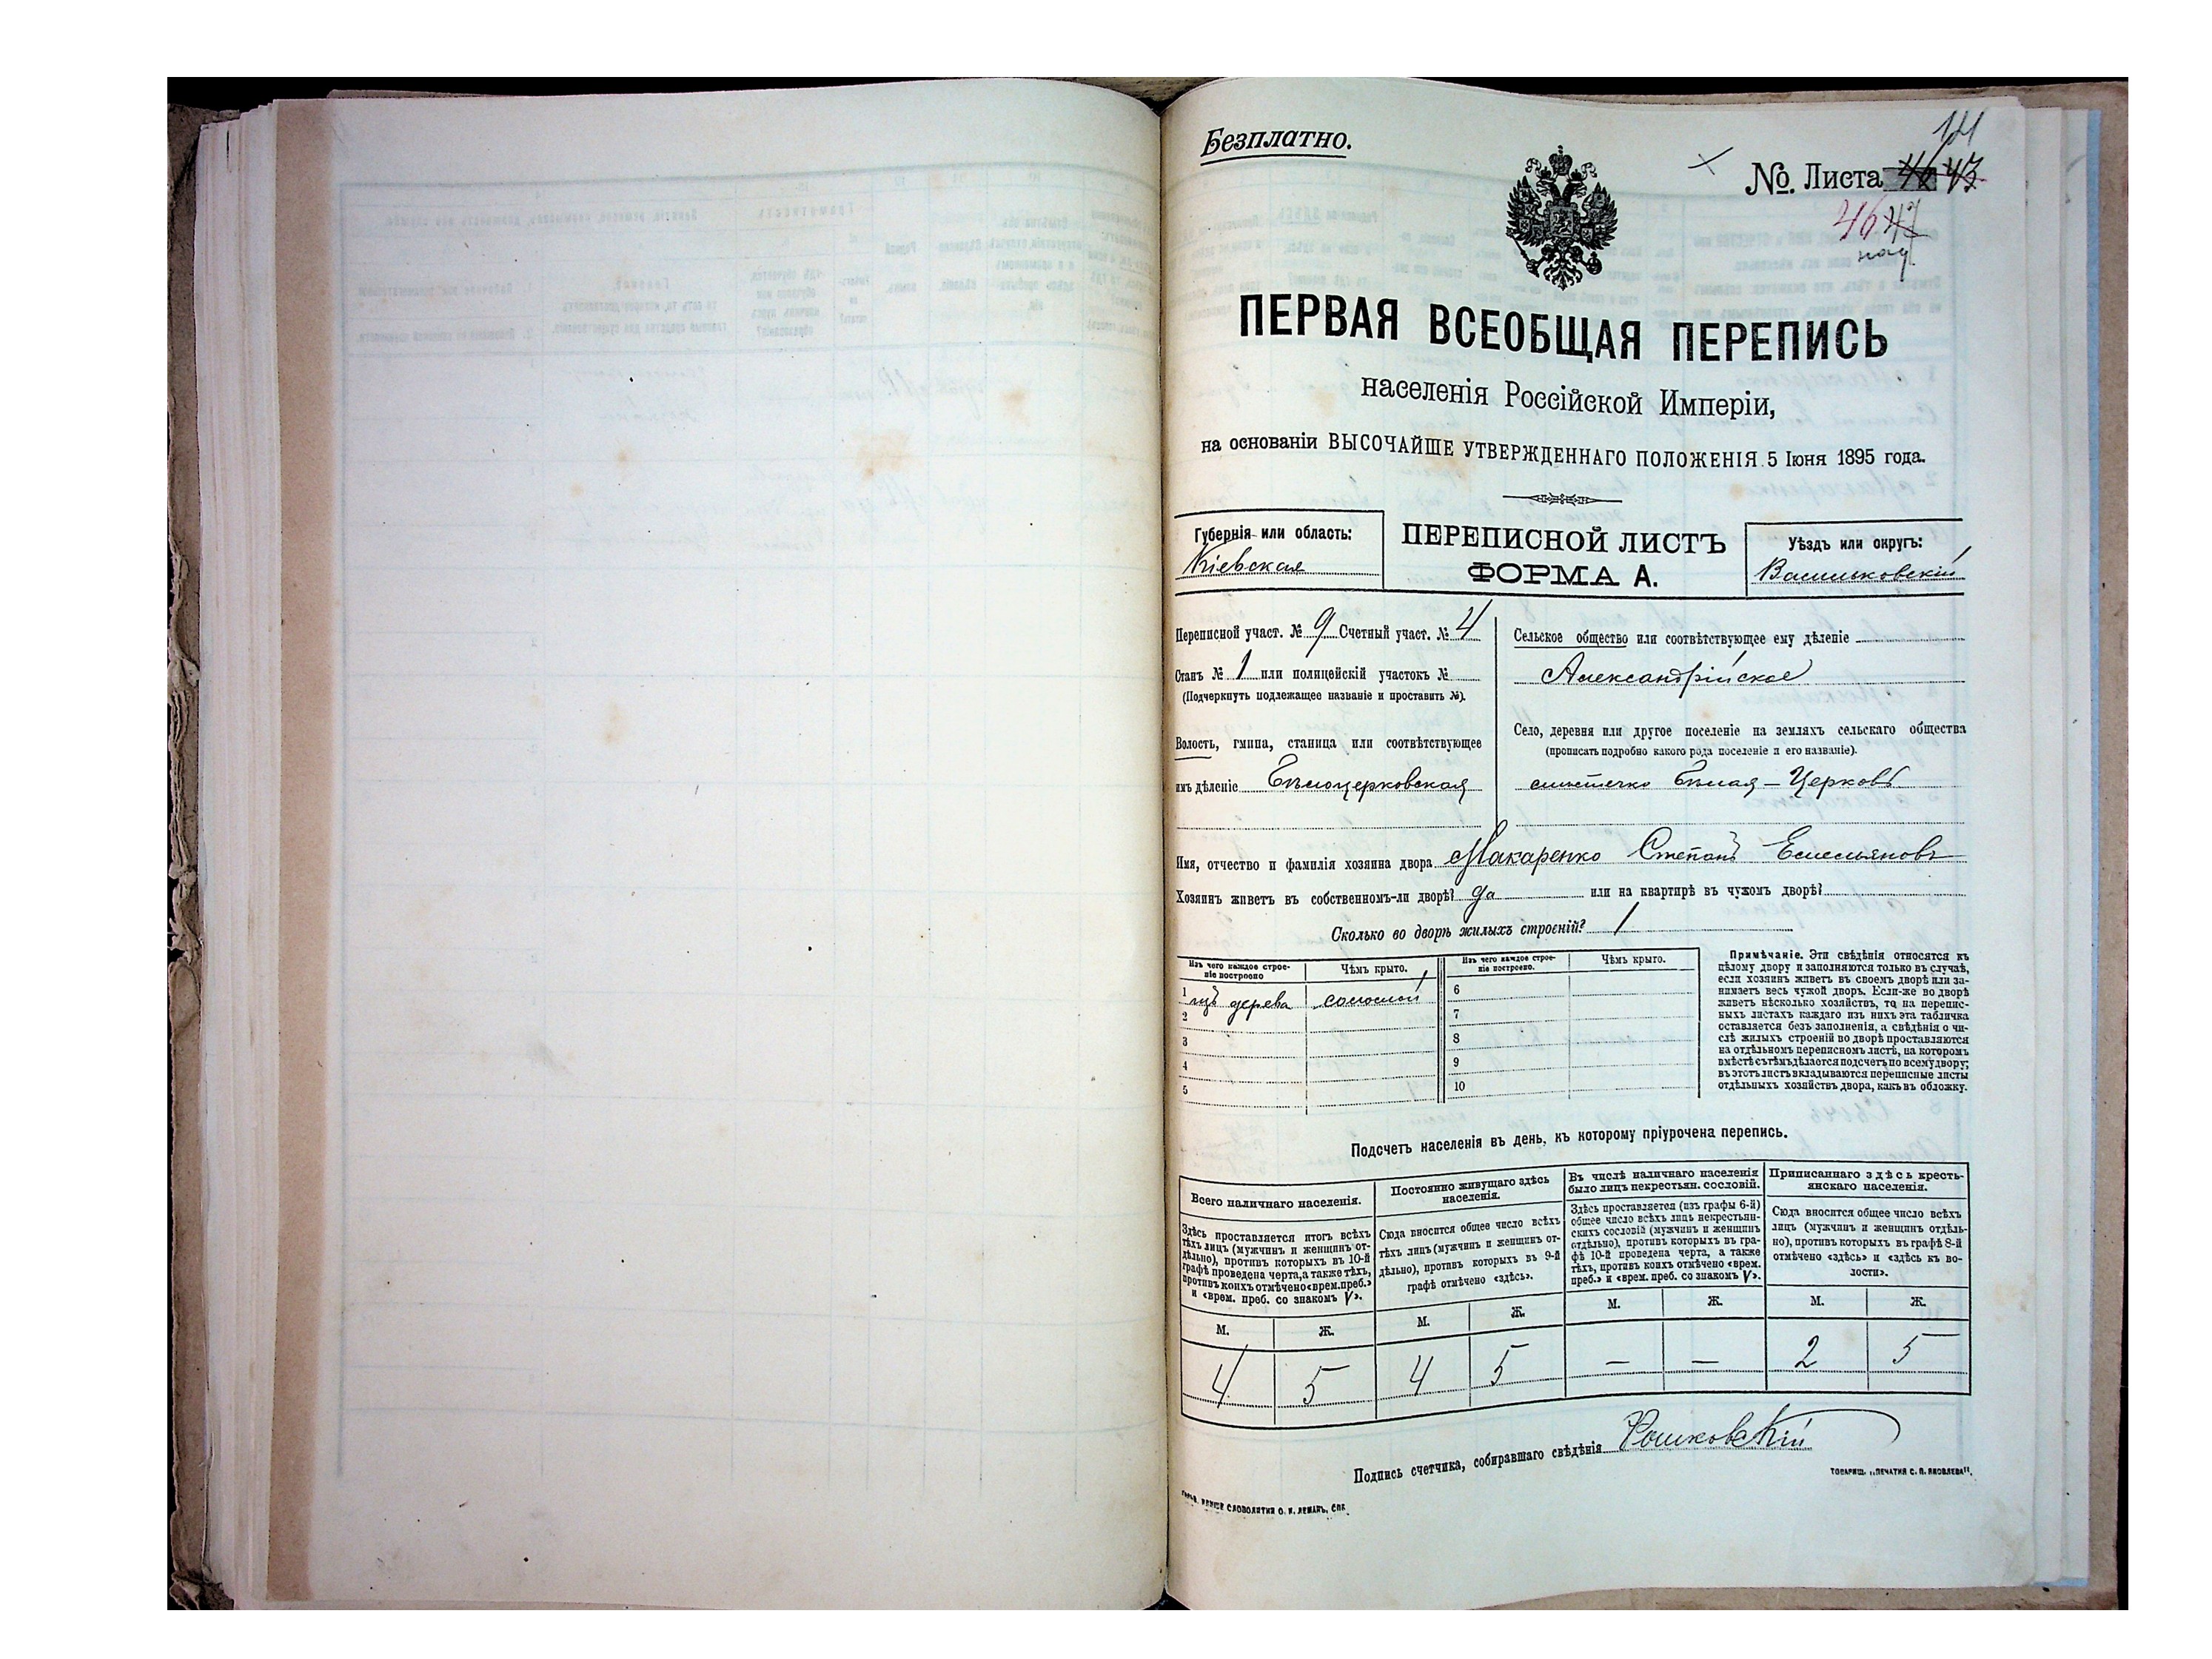 Безплатно.
141
№. Листа 46 43
46 47
ПЕРВАЯ ВСЕОБЩАЯ ПЕРЕПИСЬ
населенія Россійской Имперіи,
на основаніи ВЫСОЧАЙШЕ УТВЕРЖДЕННАГО ПОЛОЖЕНІЯ 5 Іюня 1895 года.
Губернія или область:
Кіевская
ПЕРЕПИСНОЙ ЛИСТЪ
ФОРМА А.
Уѣздъ или округъ:
Васильковскій
Переписной участ. № 9 Счетный участ. № 4
Станъ № 1 или полицейскій участокъ №
(Подчеркнуть подлежащее названіе и проставить №).
Волость, гмина, станица или соотвѣтствующее
имъ дѣленіе Бѣлоцерковская
Сельское общество или соотвѣтствующее ему дѣленіе
Александрійское
Село, деревня или другое поселеніе на земляхъ сельскаго общества
(прописать подробно какого рода поселеніе и его названіе).
мѣстечко Бѣлая-Церковь
Имя, отчество и фамилія хозяина двора Макаренко Степанъ Емельяновъ
Хозяинъ живетъ въ собственномъ-ли дворѣ? да или на квартирѣ въ чужомъ дворѣ?
Сколько во дворѣ жилыхъ строеній? 1
Изъ чего каждое строе-
ніе построено
Чѣмъ крыто.
Изъ чего каждое строе-
ніе построено.
Чѣмъ крыто.
1 изъ дерева соломой
2
3
4
5
6
7
8
9
10
Примѣчаніе. Эти свѣдѣнія относятся къ
цѣлому двору и заполняются только въ случаѣ,
если хозяинъ живетъ въ своемъ дворѣ или за-
нимаетъ весь чужой дворъ. Если-же во дворѣ
живетъ нѣсколько хозяйствъ, то на перепис-
ныхъ листахъ каждаго изъ нихъ эта табличка
оставляется безъ заполненія, а свѣдѣнія о чи-
слѣ жилыхъ строеній во дворѣ проставляются
на отдѣльномъ переписномъ листѣ, на которомъ
вмѣстѣ съ тѣмъ дѣлается подсчетъ по всему двору;
въ этотъ листъ вкладываются переписные листы
отдѣльныхъ хозяйствъ двора, какъ въ обложку.
Подсчетъ населенія въ день, къ которому пріурочена перепись.
Всего наличнаго населенія.
Здѣсь проставляется итогъ всѣхъ
тѣхъ лицъ (мужчинъ и женщинъ от-
дѣльно), противъ которыхъ въ 10-й
графѣ проведена черта, а также тѣхъ,
противъ коихъ отмѣчено «врем. преб.»
и «врем. преб. со знакомъ V».
Постоянно живущаго здѣсь
населенія.
Сюда вносится общее число всѣхъ
тѣхъ лицъ (мужчинъ и женщинъ от-
дѣльно), противъ которыхъ въ 9-й
графѣ отмѣчено «здѣсь».
Въ числѣ наличнаго населенія
было лицъ некрестьян. сословій.
Здѣсь проставляется (изъ графы 6-й)
общее число всѣхъ лицъ некрестьян-
скихъ сословій (мужчинъ и женщинъ
отдѣльно), противъ которыхъ въ гра-
фѣ 10-й проведена черта, а также
тѣхъ, противъ коихъ отмѣчено «врем.
преб.» и «врем. преб. со знакомъ V».
Приписаннаго здѣсь кресть-
янскаго населенія.
Сюда вносится общее число всѣхъ
лицъ (мужчинъ и женщинъ отдѣль-
но), противъ которыхъ въ графѣ 8-й
отмѣчено «здѣсь» и «здѣсь къ во-
лости».
М. Ж. М. Ж. М. Ж. М. Ж.
4 5 4 5 — — 2 5
Подпись счетчика, собиравшаго свѣдѣнія
ТОВАРИЩ. „ПЕЧАТНЯ С. П. ЯКОВЛЕВА".
СЛОВОЛИТНИ О. И. ЛЕМАНЪ, СПБ.